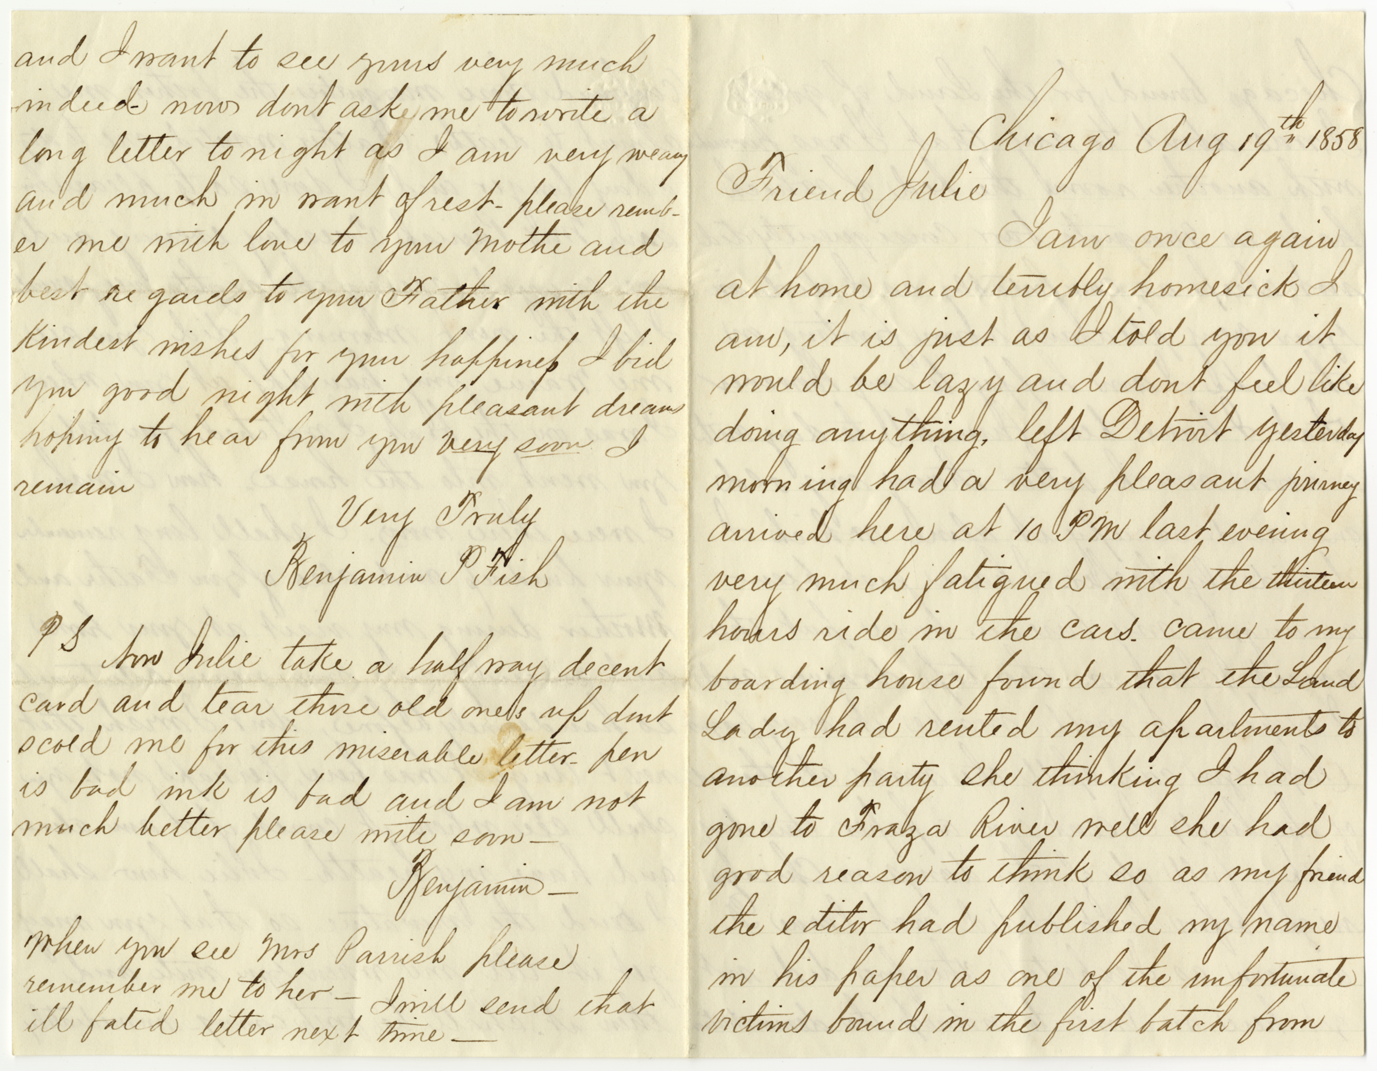 Chicago Aug 19th 1858
Friend Julie
I am once again
at home and terribly homesick I
am, it is just as I told you it
would be lazy and dont feel like
doing anything. left Detroit yesterday
morning had a very pleasant journey
arrived here at 10 PM last evening
very much fatigued with the thirteen
hours ride in the cars. came to my
boarding house found that the Land
Lady had rented my apartments to
another party she thinking I had
gone to Fraza River well she had
good reason to think so as my friend
the editor had published my name
in his paper as one of the unfortunate
victims bound in the first batch from
and I want to see yours very much
indeed- now dont ask me to write a
long letter to night as I am very weary
and much in want of rest- please remb-
er me with love to your Mothe and
best regards to your Father with the
Kindest wishes for your happiness I bid
you good night with pleasant dreams
hoping to hear from you very soon I
remain
Very Truly
Benjamin P Fish
PS Now Julie take a half way decent
card and tear those old ones up dont
scold me for this miserable letter- pen
is bad ink is bad and I am not
much better please write soon—
Benjamin—
When you see Mrs Parrish please
remember me to her— I will send that
ill fated letter next time—